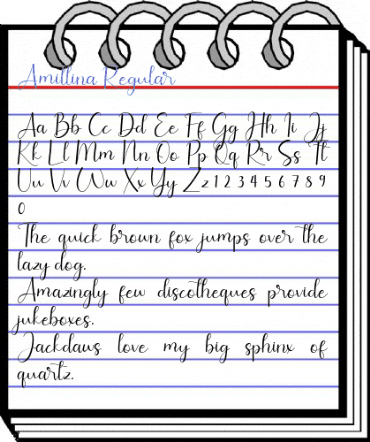 Amillina Regular
Aa Bb Cc Dd Ee Ff Gg Hh Ii Jj
Kk Ll Mm Nn Oo Pp Qq Rr Ss Tt
Uu Vv Ww Xx Yy Zz 1 2 3 4 5 6 7 8 9
0
The quick brown fox jumps over the
lazy dog.
Amazingly few discotheques provide
jukeboxes.
Jackdaws love my big sphinx of
quartz.